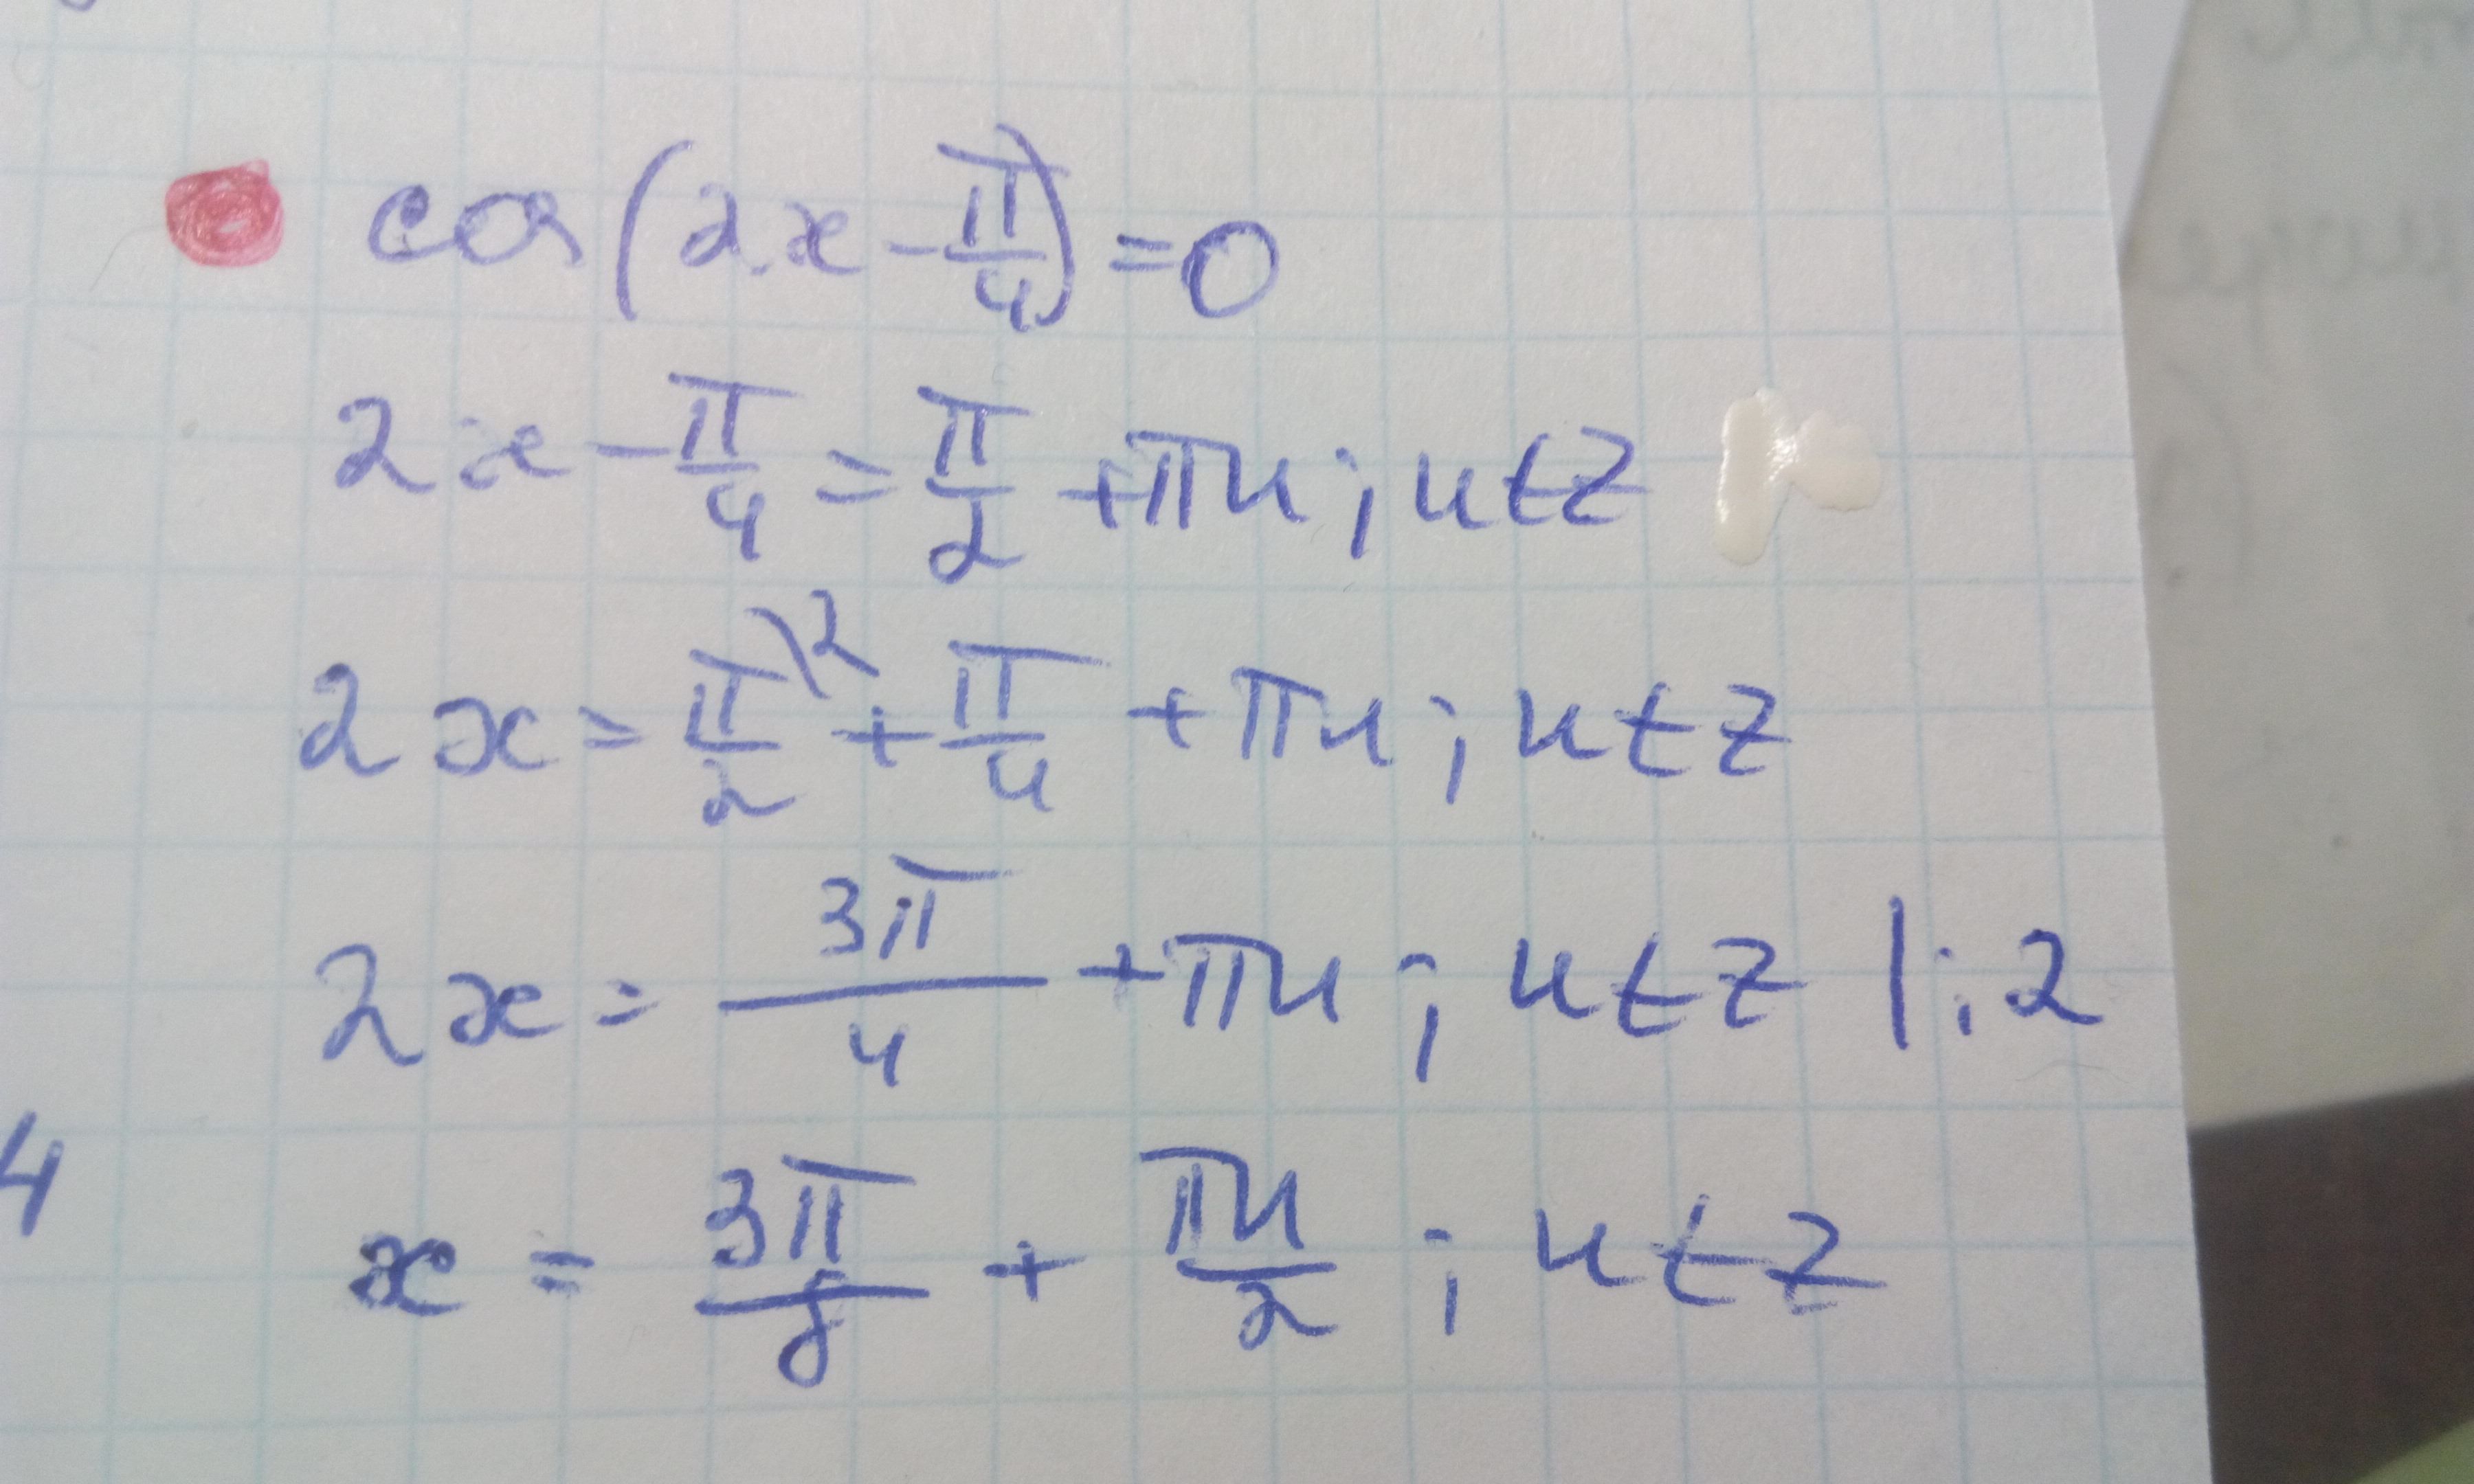 cos(2x - π/4) = 0
2x - π/4 = π/2 + πn; n∈Z
2x = π/2^2 + π/4 + πn; n∈Z
2x = 3π/4 + πn; n∈Z |:2
4
x = 3π/8 + πn/2; n∈Z